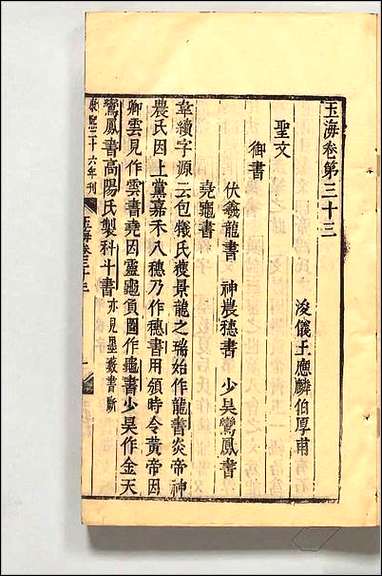 玉海卷第三十三
浚儀王應麟伯厚甫
聖文
御書
伏羲龍書　神農穗書　少昊鸞鳳書
堯龜書
韋續字源云包犧氏獲景龍之瑞始作龍書炎帝神
農氏因上黨嘉禾八穗乃作穗書用頒時令黃帝因
卿雲見作雲書堯因靈龜負圖作龜書少昊作金天
鸞鳳書高陽氏製科斗書亦見墨藪書斷
康熙二十六年刊
玉海卷三十三
一